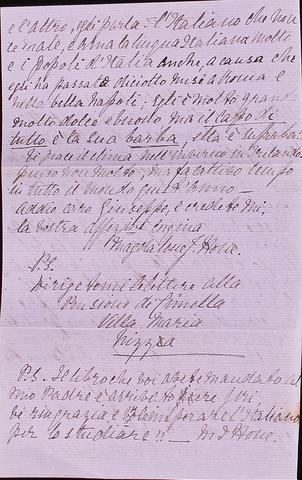 e l'altro, qui parla l'Italiano che non
c'e male, e ama la lingua Italiana molto
e i popoli d'Italia anche, a causa che
egli ha passato diciotto mesi a Roma e
nella bella Napoli; egli è molto grand
molto dolce e buono ma il Capo di
tutto è la sua barba, ella è superba
Vi piace il clima nell'inverno in Irlanda
punto non molto, ma fa cattivo tempo
in tutto il mondo quest'Anno —
Addio caro Giuseppe, e credete mi,
la vostra affezma cugina
Magdalene J. Hone.
P.S.
Dirigete mi le lettere alla
Pensione di
Villa Maria
Nizza
P.S. Il libro che voi avete mandato al
mio Padre è arrivato jeri
vi ringrazia e l'Italiano
per lo studiare!! — M J Hone.